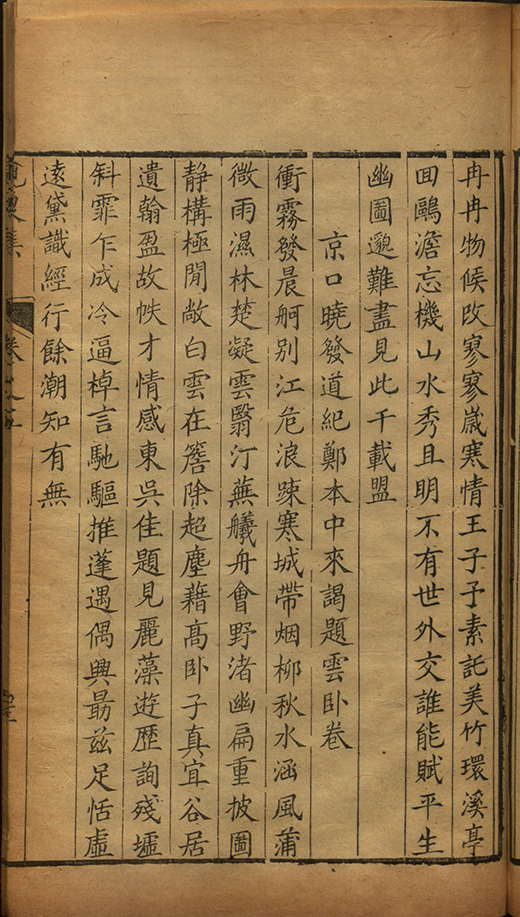 冉冉物候改寥寥嵗寒情王子予素託美竹環溪亭
囬鷗澹忘機山水秀且明不有世外交誰能賦平生
幽圖邈難盡見此千載盟
京口曉發道紀鄭本中來謁題雲卧卷
衝霧發晨舸别江危浪踈寒城帶烟栁秋水涵風蒲
微雨濕林楚凝雲翳汀蕪艤舟會野渚幽扁重披圖
静構極閒敞白雲在簷除超塵藉髙卧子真宜谷居
遺翰盈故帙才情感東吳佳題見麗藻遊歴詢殘墟
斜霏乍成冷逼棹言馳驅推蓬遇偶興朂兹足恬虛
逺黛識經行餘潮知有無